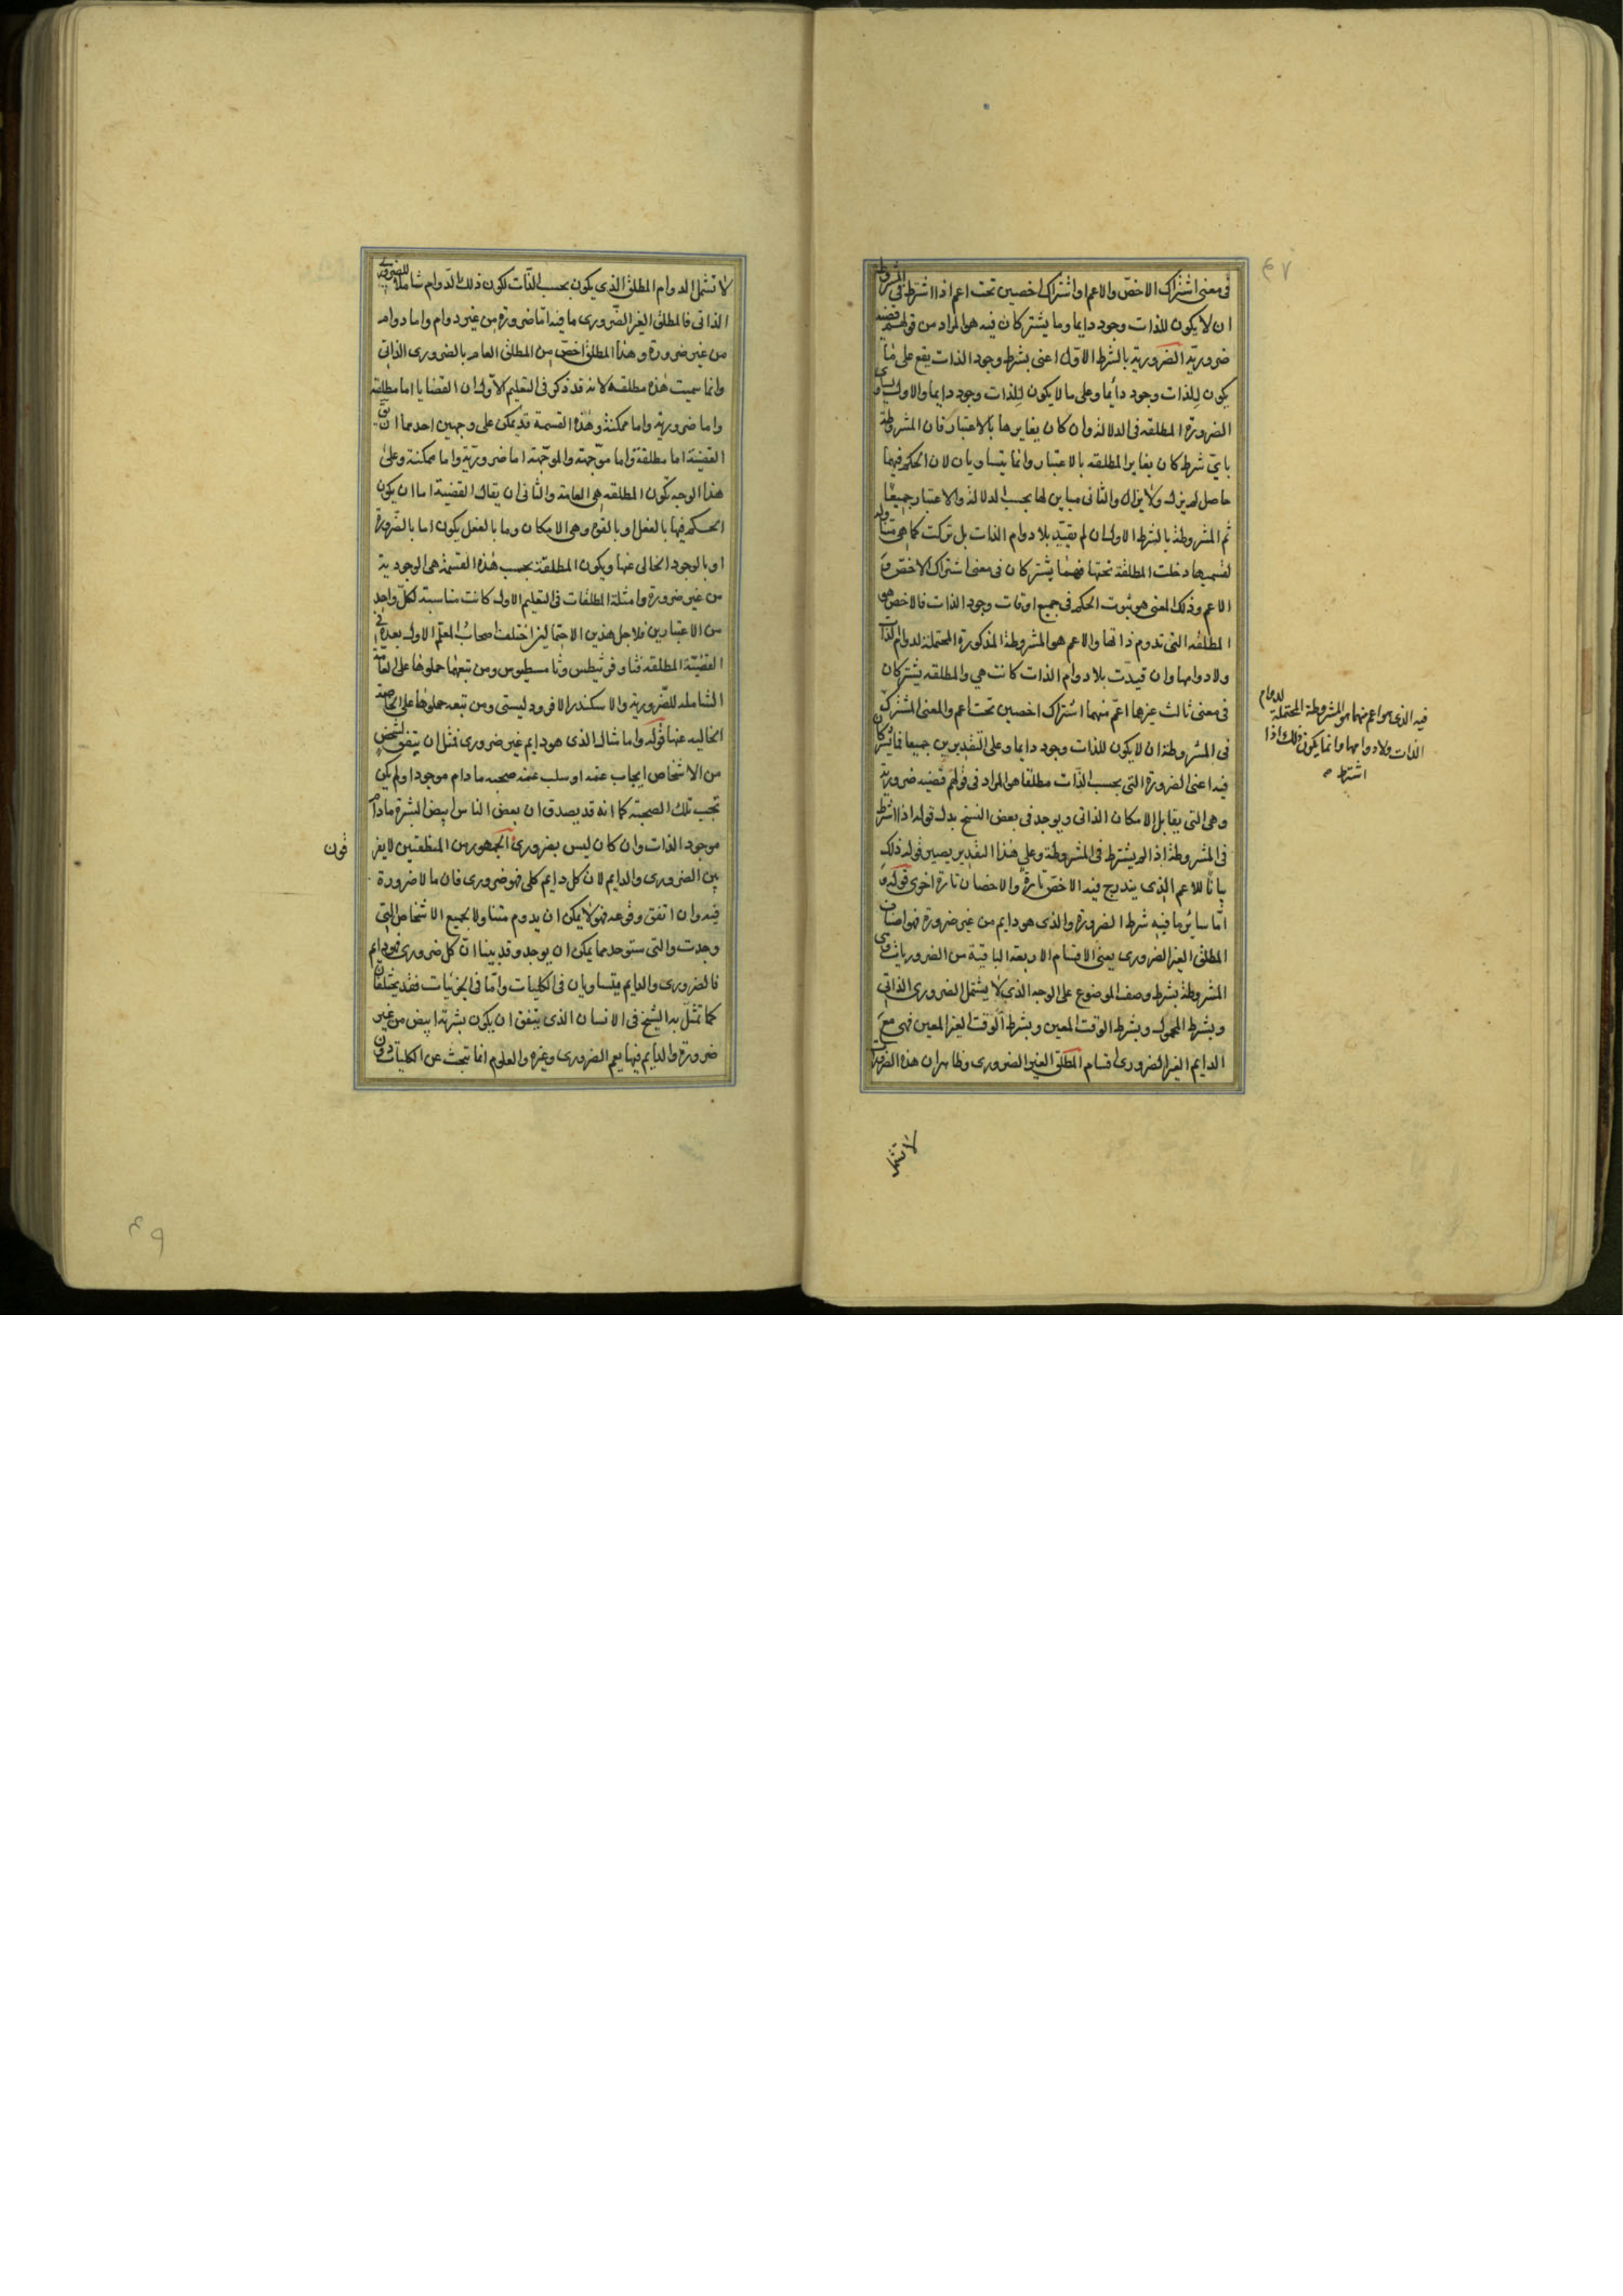 ٤٧
فى معنى اشتراك الاخصّ والاعم او اشتراك اخصين تحت اعم اذا اشترط فى المشروطة
ان لا يكون للذات وجود دايما وما يشتركان فيه هو المراد من قولهم قضية
ضرورية الضرورية بالشرط الاول اعنى بشرط وجود الذات يقع على ما
يكون للذات وجود دائما وعلى ما لا يكون للذات وجود دايما والاول يساوى
الضرورة المطلقه فى الدلالة وان كان يغايرها بالاعتبار فان المشروطة
باىّ شرط كان يغاير المطلقه بالاعتبار وانما يتساويان لان الحكم فيهما
حاصل لم يزل ولا يزال والثانى مباين لها بحسب الدلالة والاعتبار جميعًا
ثم المشروطة بالشرط الاول ان لم يقيّد بلا دوام الذات بل تركت كما هى متناولة
لقسميها دخلت المطلقة تحتها فهما يشتركان فى معنى اشتراك الاخص مع
الاعم وذلك المعنى هو ثبوت الحكم فى جميع اوقات وجود الذات فالاخص هو
المطلقه التى تدوم ذاتها والاعم هو المشروطة المذكورة المحتملة لدوام الذات
ولادوامها وان قيدت بلا دوام الذات كانت هي والمطلقه يشتركان
فى معنى ثالث غيرها اعمّ منهما اشتراك اخصين تحت اعم والمعنى المشترك
فيه الذى هو اعم منهما هو المشروطة المحتملة لدوام
الذات ولادوامها وانما يكون ذلك اذا
اشترط
فى المشروطة ان لا يكون للذات وجود دايما وعلى التقديرين جميعا فما يشتركان
فيه اعنى الضرورة التى بحسب الذّات مطلقا هو المراد فى قولهم قضيه ضرورية
وهى التى يقابل الامكان الذاتى ويوجد فى بعض النسخ بدل قوله اذا اشترط
فى المشروطة اذا لم يشترط فى المشروطة وعلى هذا التقدير يصير قوله ذلك
بيانًا للاعم الذى يندرج فيه الاخصّ تارةً والاخصان تارة اخرى قوله و
امّا ساير ما فيه شرط الضرورة والذى هو دايم من غير ضرورة فهو اصناف
المطلق الغير الضرورى يعنى الاقسام الاربعة الباقية من الضروريات وهى
المشروطة بشرط وصف الموضوع على الوجه الذى لا يشتمل الضرورى الذاتى
وبشرط المحمول وبشرط الوقت المعين وبشرط الوقت الغير المعين فهى مع
الدايم الغير الضرورى اقسام المطلق الغير الضرورى وظاهر ان هذه الضرورات
لا تشمل
لا تشمل الدوام المطلق الذى يكون بحسب الذّات لكون ذلك الدوام شاملا للضرورى
الذاتى فالمطلق الغير الضّرورى ما فيه امّا ضرورة من غير دوام واما دوام
من غير ضرورة وهذا المطلق اخصّ من المطلق العام بالضرورى الذاتى
وانما سميت هذه مطلقه لانه قد ذكر فى التعليم الاول ان القضايا اما مطلقه
واما ضرورية واما ممكنة وهذه القسمة قد يمكن على وجهين احدهما ان يق
القضية اما مطلقة واما موجّهة والموجّهة اما ضرورية واما ممكنة وعلى
هذا الوجه تكون المطلقه هى العامة والثانى ان يقال القضية اما ان يكون
الحكم فيها بالفعل او بالقوة وهى الامكان وما بالفعل يكون اما بالضّرورة
او بالوجود الخالى عنها ويكون المطلقة بحسب هذه القسمة هى الوجودية
من غير ضرورة وامثلة المطلقات فى التعليم الاول كانت مناسبة لكلّ واحد
من الاعتبارين فلاجل هذين الاحتمالين اختلف اصحاب المعلّم الاول بعده فى
القضيّة المطلقه فثاوفرسطس وثامسطيوس ومن تبعهما حملوها على العامّة
الشاملة للضّرورية والاسكندر الافروديسى ومن تبعه حملوها على الخاصّة
الخاليه عنها قوله واما مثال الذى هو دايم غير ضرورى فمثل ان يتفق لشخص
من الاشخاص ايجاب عنه او سلب عنه صحبه مادام موجودا ولم يكن
تجب تلك الصحبة كما انه قد يصدق ان بعض الناس ابيض البشرة مادام
موجود الذات وان كان ليس بضرورى الجمهور من المنطقيين لا يفر
قون
بين الضرورى والدايم لان كل دايم كلى فهو ضرورى فان ما لا ضرورة
فيه وان اتفق وقوعه فهو لا يمكن ان يدوم متناولا لجميع الاشخاص التى
وجدت والتى ستوجد مما يمكن ان يوجد وقد بينا انّ كل ضرورى فهو دايم
فالضرورى والدايم يتساويان فى الكليات وامّا فى الجزئيات فقد يختلفان
كما تمثّل به الشيخ فى الانسان الذى يتفق ان يكون بشرته ابيض من غير
ضرورة والدايم فيها يعم الضرورى وغيره والعلوم انما تبحث عن الكليات دون
٤٩